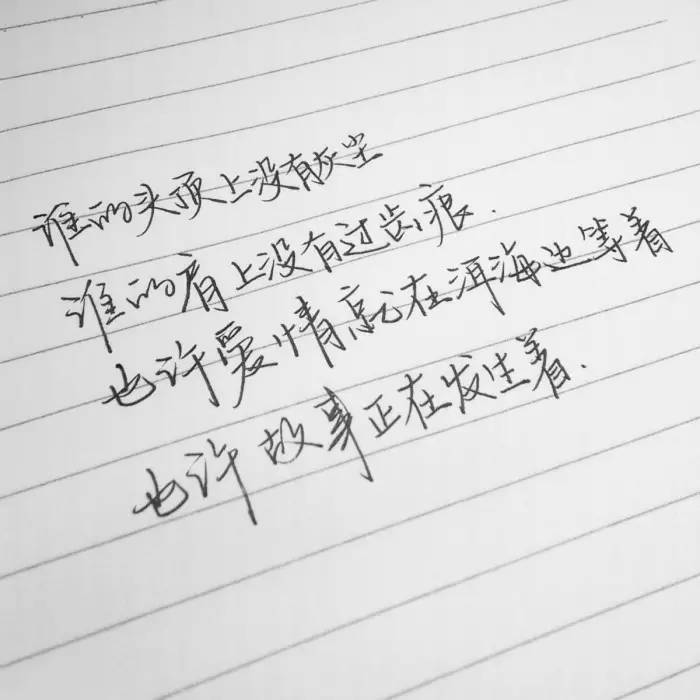 谁的头顶上没有灰尘
谁的肩上没有过齿痕.
也许爱情就在洱海边等着
也许故事正在发生着.